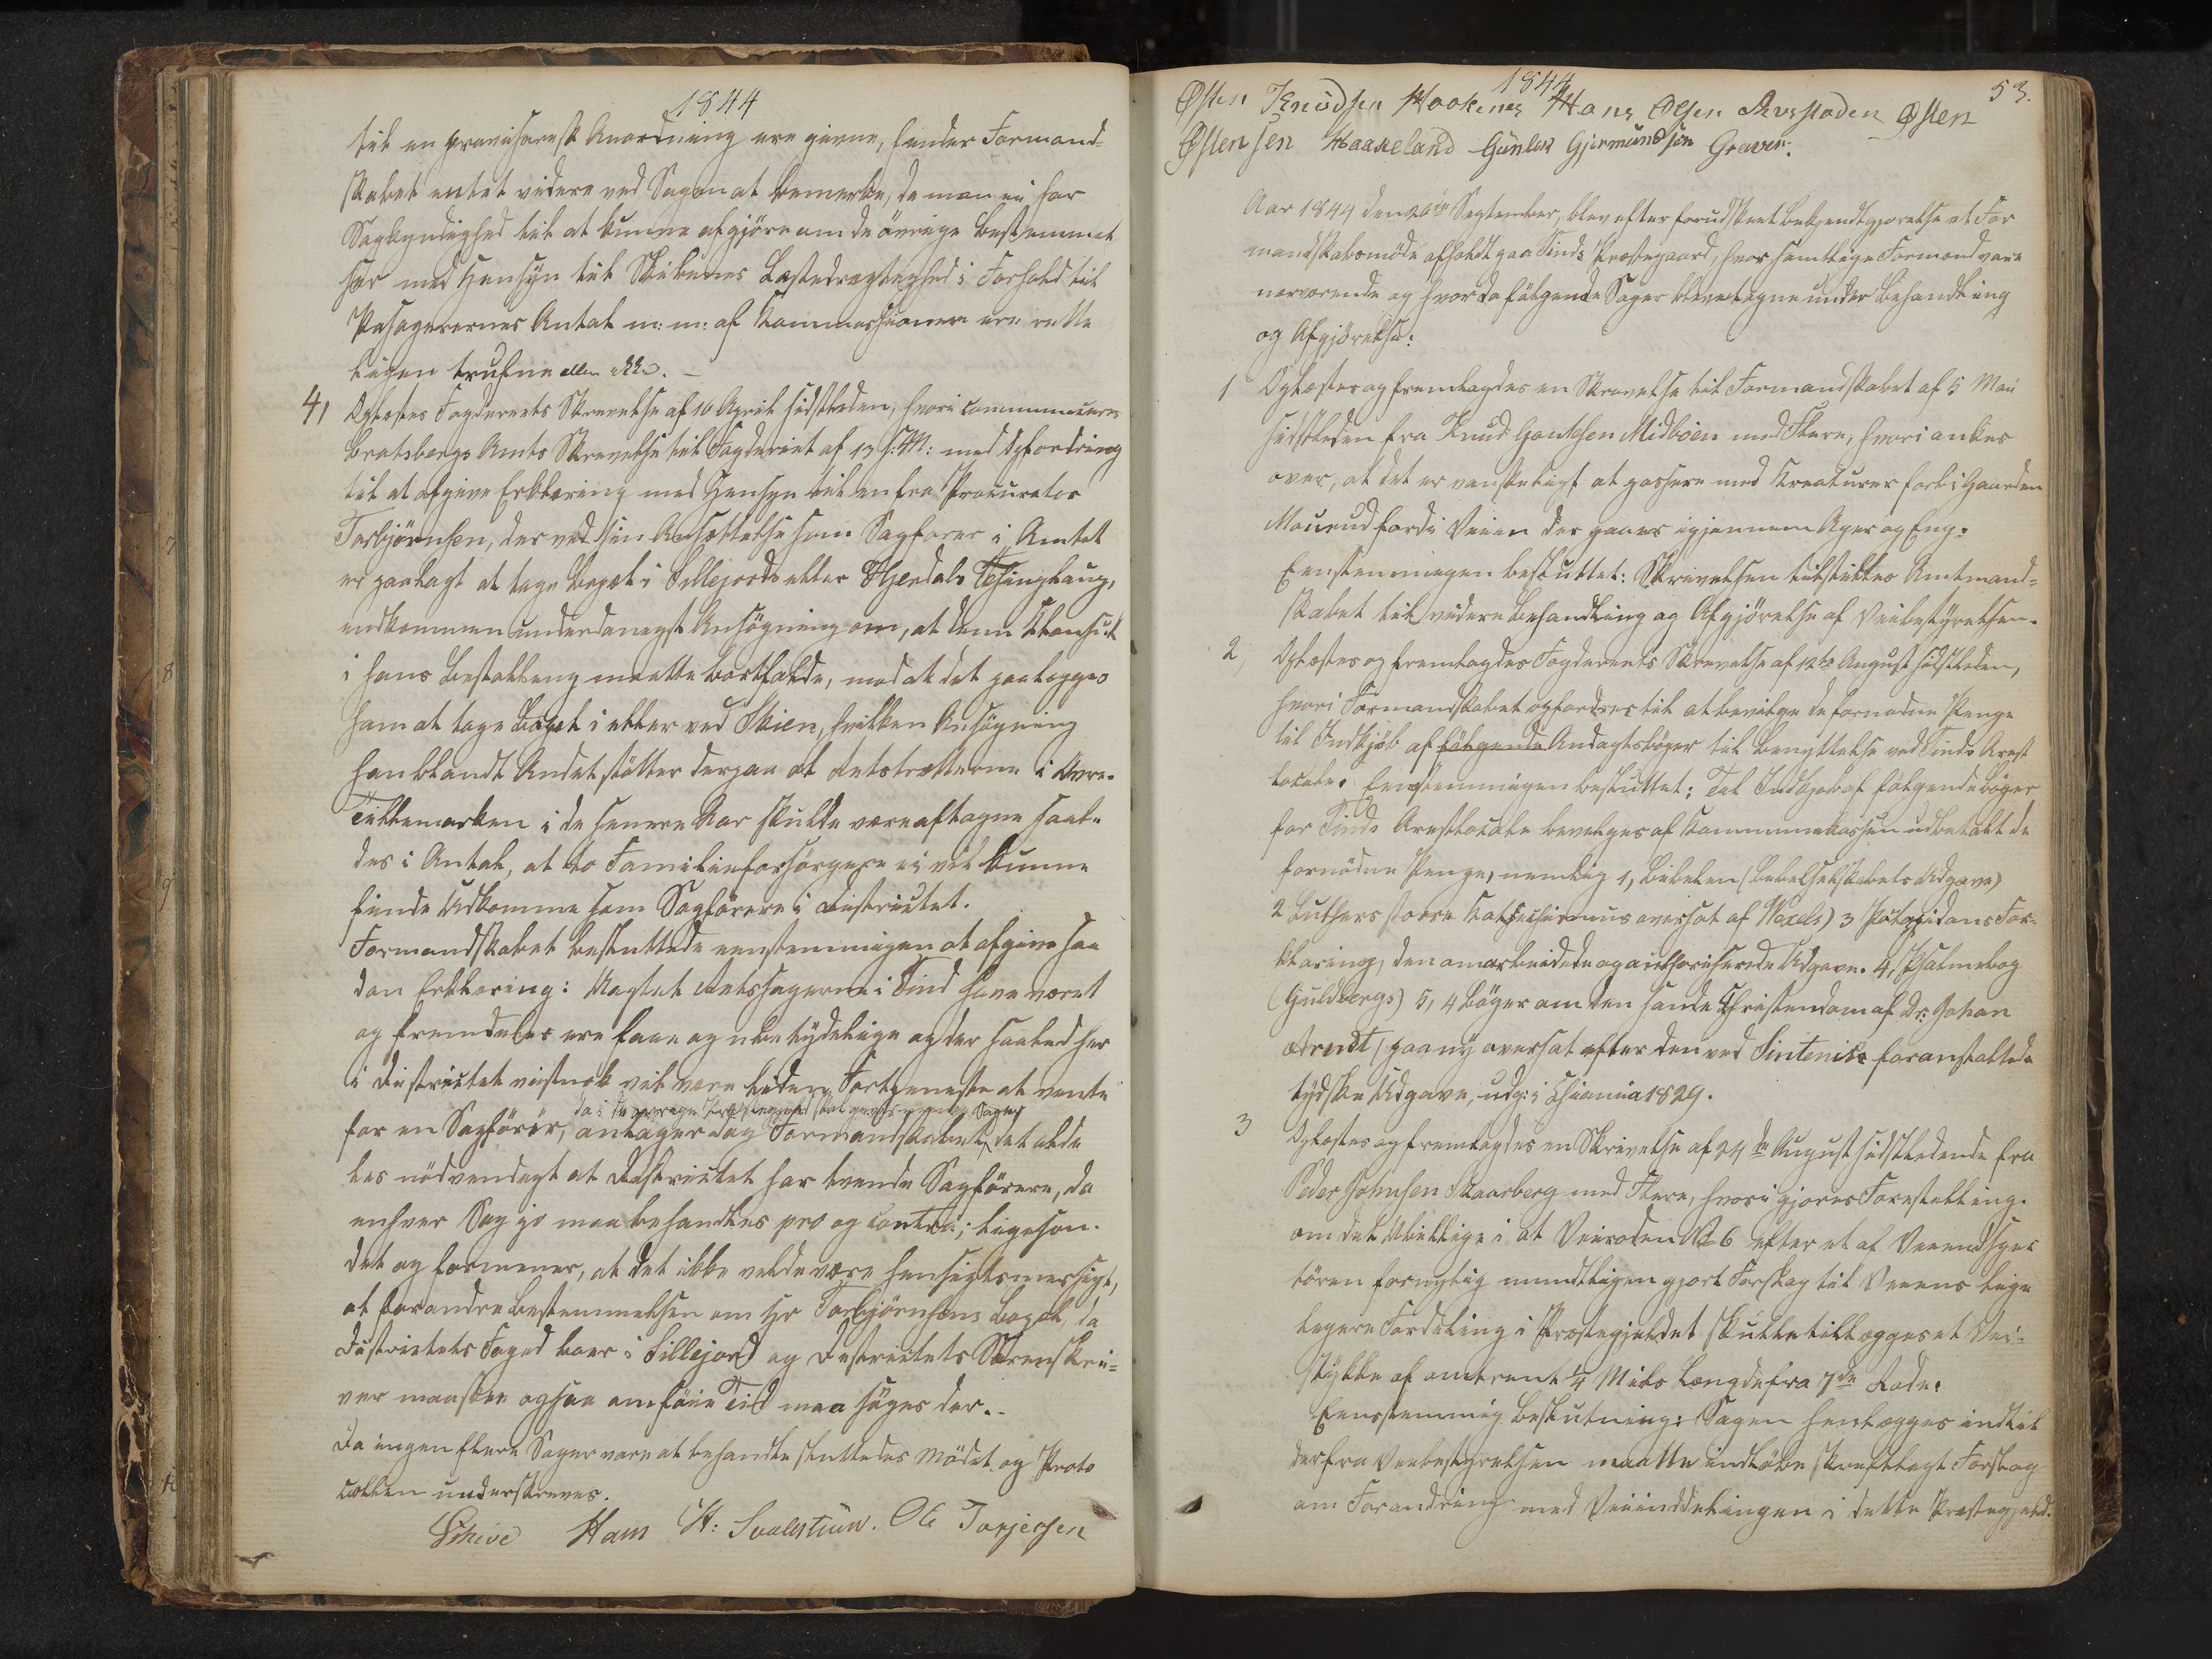 1844
til en provisorisk Anordning ere givne, finder Formand-
skabet intet videre ved Sagen at bemerke, da man ei har
Sagkyndighed til at kunne afgjöre om de övrige Bestemmel
ser med Hensyn til Skibenes Lastedrægtighed i Forhold til
Passagerernes Antal m: m: af Kommissionen ere rette
ligen trufne eller ikke. –
4, Oplæstes Fogderiets Skrivelse af 16 April sidstleden, hvori communiceres
Bratsbergs Amts Skrivelse til Fogderiet af 13 s: M: med Opfordring
til at afgive Erklæring med Hensyn til en fra Procurator
Torbjörnsen, der ved sin Ansættelse som Sagförer i Amtet
er paalagt at tage Bopæl i Sillejords eller Hjerdals Thinglaug,
indkommen underdanigst Ansögning om, at denne Klausul
i hans Bestalling maatte bortfalde, mod at det paalægges
ham at tage Bopæl i eller ved Skien, hvilken Ansögning
han blandt Andet stötter derpaa at Retstrætterne i Övre-
Tellemarken i de senere Aar skulde være aftagne saale-
des i Antal, at to Familieforsörgere ei vil kunne
finde Udkomme som Sagförere i Districtet.
Formandskabet besluttede eenstemmigen at afgive saa
dan Erklæring: Uagtet Retssagerne i Tind have været
og fremdeles ere faae og ubetydelige og der saaled her
i Districtet vistnok vil være liden Fortjeneste at vente
da i de övrige Præstegjeld skal gives mange Sager
for en Sagförer, antager dog Formandskabet, det alde
les nödvendigt at Districtet har tvende Sagförere, da
enhver Sag jo maa behandles pro og contra; ligesom
det og formener, at det ikke vilde være hensigtsmessigt,
at forandre Bestemmelsen om Hr Torbjörnsens Bopæl, da
Districtets Foged boer i Sillejord og Districtets Sorenskri-
ver maaskee ogsaa om föie Tid maa söges der. -
Da ingen flere Sager vare at behandle sluttedes Mödet og Proto
collen underskreves.
Schive Hans H: Ole Torjersen
1844 53.
Östen Knudsen Hans Olsen Östen
Östensen Haakeland Gunlek Gjermundsen Graver.
Aar 1844 den 20de September, blev efter forudskeet Bekjendtgjörelse et For
mandskabsmöde afholdt paa Tinds Præstegaard, hvor samtlige Formænd vare
nærværende og hvor da fölgende Sager bleve tagne under Behandling
og Afgjörelse:
1 Oplæstes og fremlagdes en Skrivelse til Formandskabet af 5 Mai
sidstleden fra Knud Midböen med Flere, hvori ankes
over, at det er vanskeligt at passere med Kreaturer forbi Gaarden
Mourud fordi Veien der gaaer igjennem Ager og Eng.
Eenstemmigen besluttet: Skrivelsen tilstilles Amtmand-
skabet til videre Behandling og Afgjörelse af Veibestyrelsen.
2, Oplæstes og fremlagdes Fogderiets Skrivelse af 12te August sidstleden,
hvori Formandskabet opfordres til at bevilge de fornödne Penge
til Indkjöb af fölgende Andagtsböger til Benyttelse ved Tinds Arest
locale. Eenstemmigen besluttet: Til Indkjöb af fölgende Böger
for Tinds Arestlocale bevilges af Kommunekassen udbetalt de
fornödne Penge, nemlig 1, Bibelen (Bibelselskabets Udgave)
2 Luthers store Katechismus oversat af Wexels) 3 Pontoppidans For-
klaring, den omarbeidede og authoriserede Udgave. 4, Psalmebog
(Guldbergs) 5, 4 Böger om den sande Christendom af Dr: Johan
Arndt, paany oversat efter den ved Sintenis foranstaltede
tydske Udgave, udg: i Chiania 1829.
3 Oplæstes og fremlagdes en Skrivelse af 24de August sidstledende fra
Peder Johnsen Skaarberg med Flere, hvori gjöres Forestilling
om det Ubillige i at Veiroden No 6 efter et af Veiinspec
tören fornylig mundtligen gjort Forslag til Veiens lige
ligere Fordeling i Præstegjeldet skulle tillægges et Vei-
stykke af omtrent 1/4 Miils Længde fra 7de Rode.
Eenstemmig Beslutning: Sagen henlægges indtil
der fra Veibestyrelsen maatte indlöbe skriftligt Forslag
om Forandring med Veiinddelingen i dette Præstegjeld.